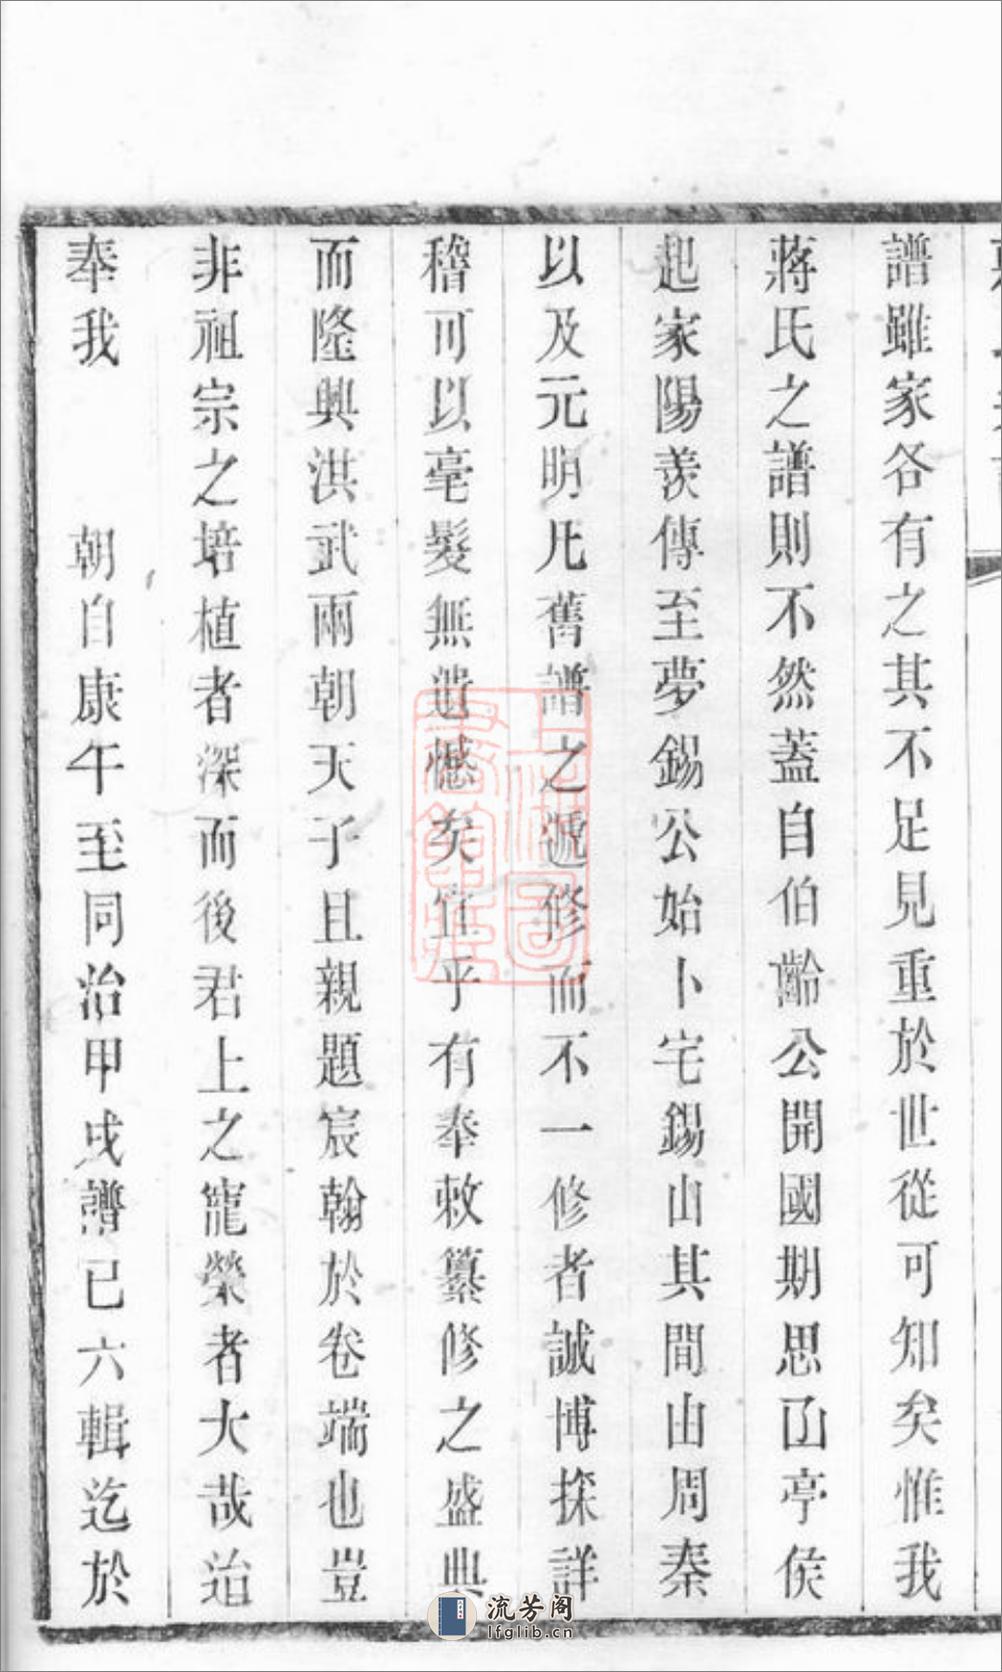 譜雖家各有之其不足見重於世從可知矣惟我
蔣氏之譜則不然蓋自伯齡公開國期思㓙亭侯
起家陽羨傳至夢錫公始卜宅錫山其間由周秦
以及元明凡舊譜之遞修而不一修者誠博採詳
稽可以毫髮無遺憾矣宜乎有奉敕纂修之盛典
而隆興洪武兩朝天子且親題宸翰於卷端也豈
非祖宗之培植者深而後君上之寵榮者大哉迨
奉我 朝自康午至同治甲戌譜已六輯迄於
上海圖書館藏
流芳阁
lfglib.cn